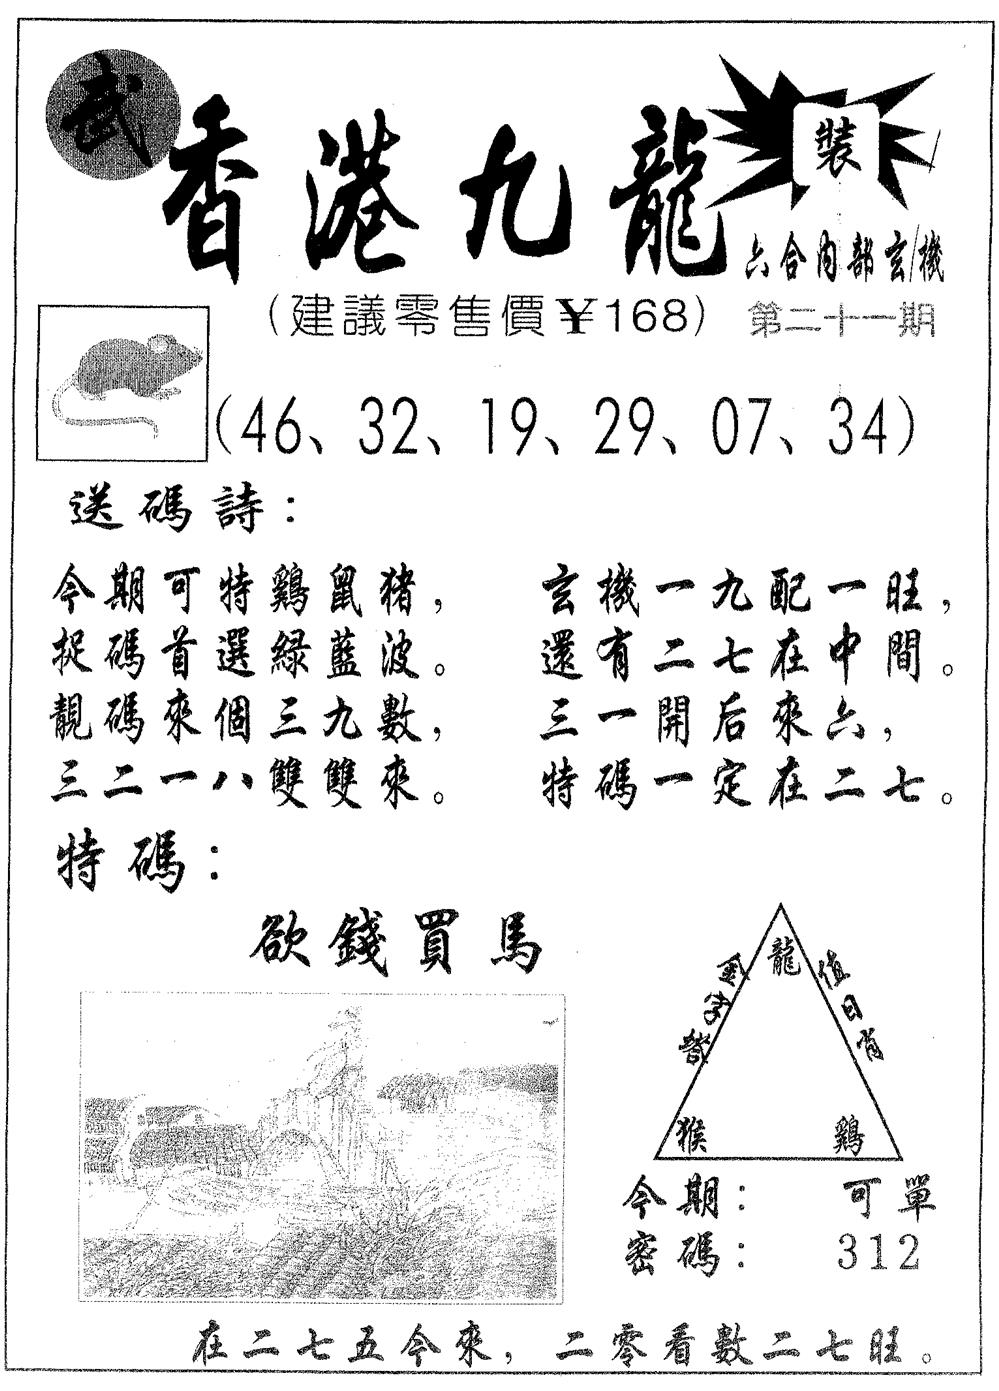 武
香港九龍
裝
六合内部玄機
(建議零售價¥168)
第二十一期
(46、32、19、29、07、34)
送碼詩:
今期可特鷄鼠猪,
捉碼首選緑藍波。
靚碼來個三九數,
三二一八雙雙來。
玄機一九配一旺,
還有二七在中間。
三一開后來六,
特碼一定在二七。
特碼:
欲錢買馬
金字塔
值日肖
龍
猴
鷄
今期: 可單
密碼: 312
在二七五今來,二零看數二七旺。